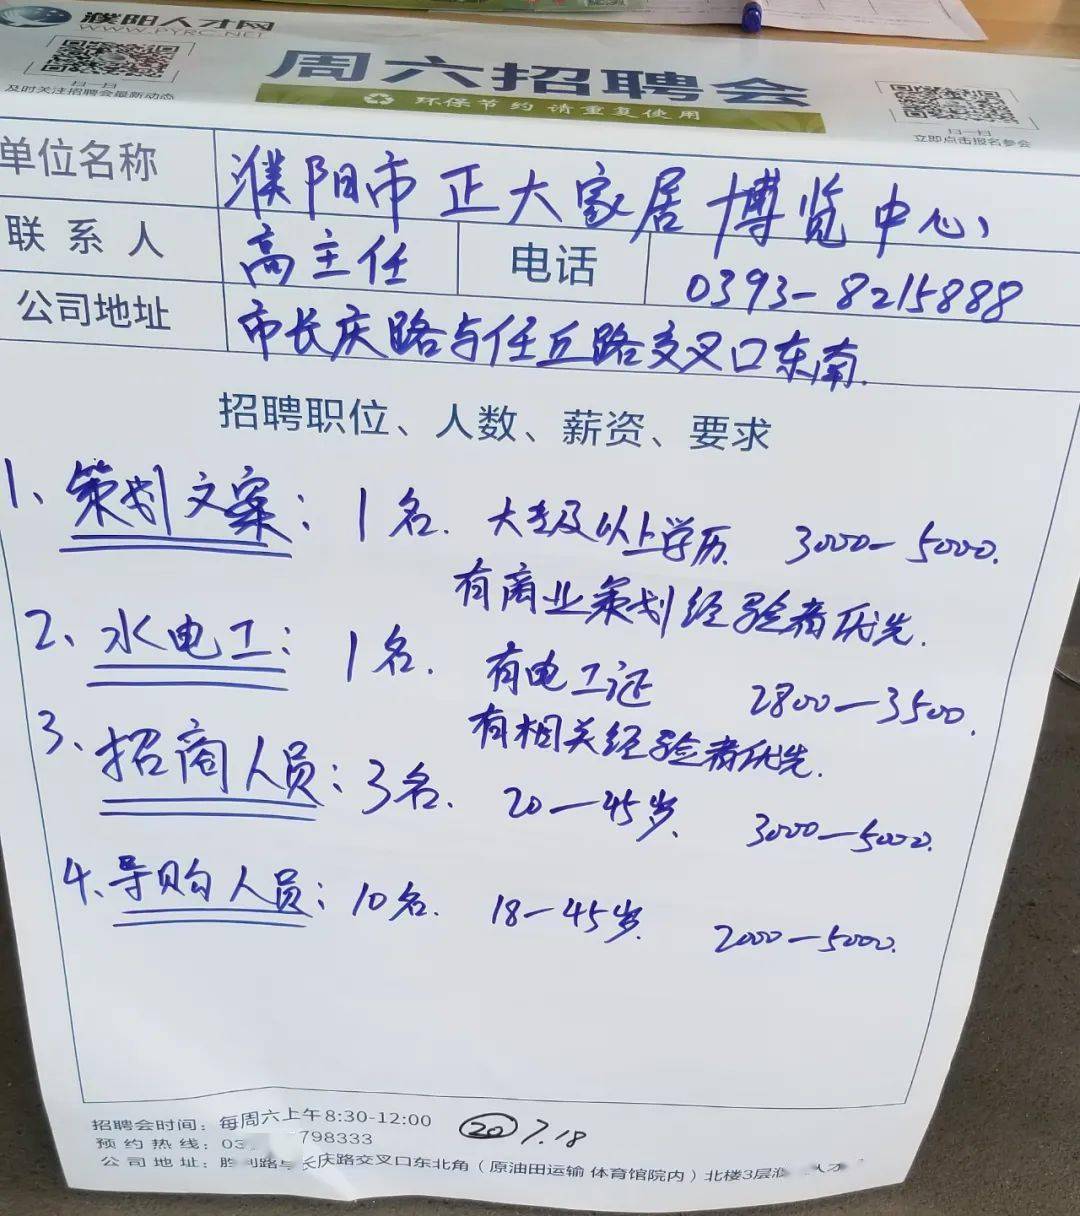 濮阳人才网
WWW.PYRC.NET
扫一扫
及时关注招聘会最新动态
周六招聘会
环保节约 请重复使用
扫一扫
立即点击报名参会
单位名称 濮阳市正大家居博览中心
联系人 高主任 电话 0393-8215888
公司地址 市长庆路与任丘路交叉口东南.
招聘职位、人数、薪资、要求
1、策划文案: 1名. 大专及以上学历 3000-5000.
有商业策划经验者优先.
2、水电工: 1名. 有电工证 2800-3500.
有相关经验者优先.
3、招商人员: 3名. 20-45岁. 3000-5000.
4、导购人员: 10名. 18-45岁. 2000-5000.
招聘会时间：每周六上午8:30-12:00
预约热线：03 798333
⑳ 7.18
公司地址：胜利路与长庆路交叉口东北角（原油田运输 体育馆院内）北楼3层